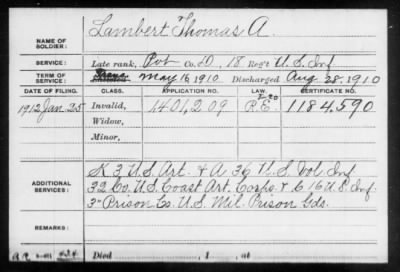 NAME OF SOLDIER: Lambert Thomas A.
SERVICE: Late rank, Pvt Co. D, 18 Reg't U.S. Inf
TERM OF SERVICE: May 16, 1910 Discharged Aug 28, 1910
DATE OF FILING. CLASS. APPLICATION NO. LAW. CERTIFICATE NO.
1912 Jan 25 Invalid, 1401,209 R.E. 1184,590
Widow,
Minor,
ADDITIONAL SERVICES: K 3 U.S. Art. & A 36 U.S. Vol Inf
32 Co. U.S. Coast Art. Corps. & G 16 U.S. Inf.
3d Prison Co. U.S. Mil. Prison Gds.
REMARKS:
Died , 1 , at